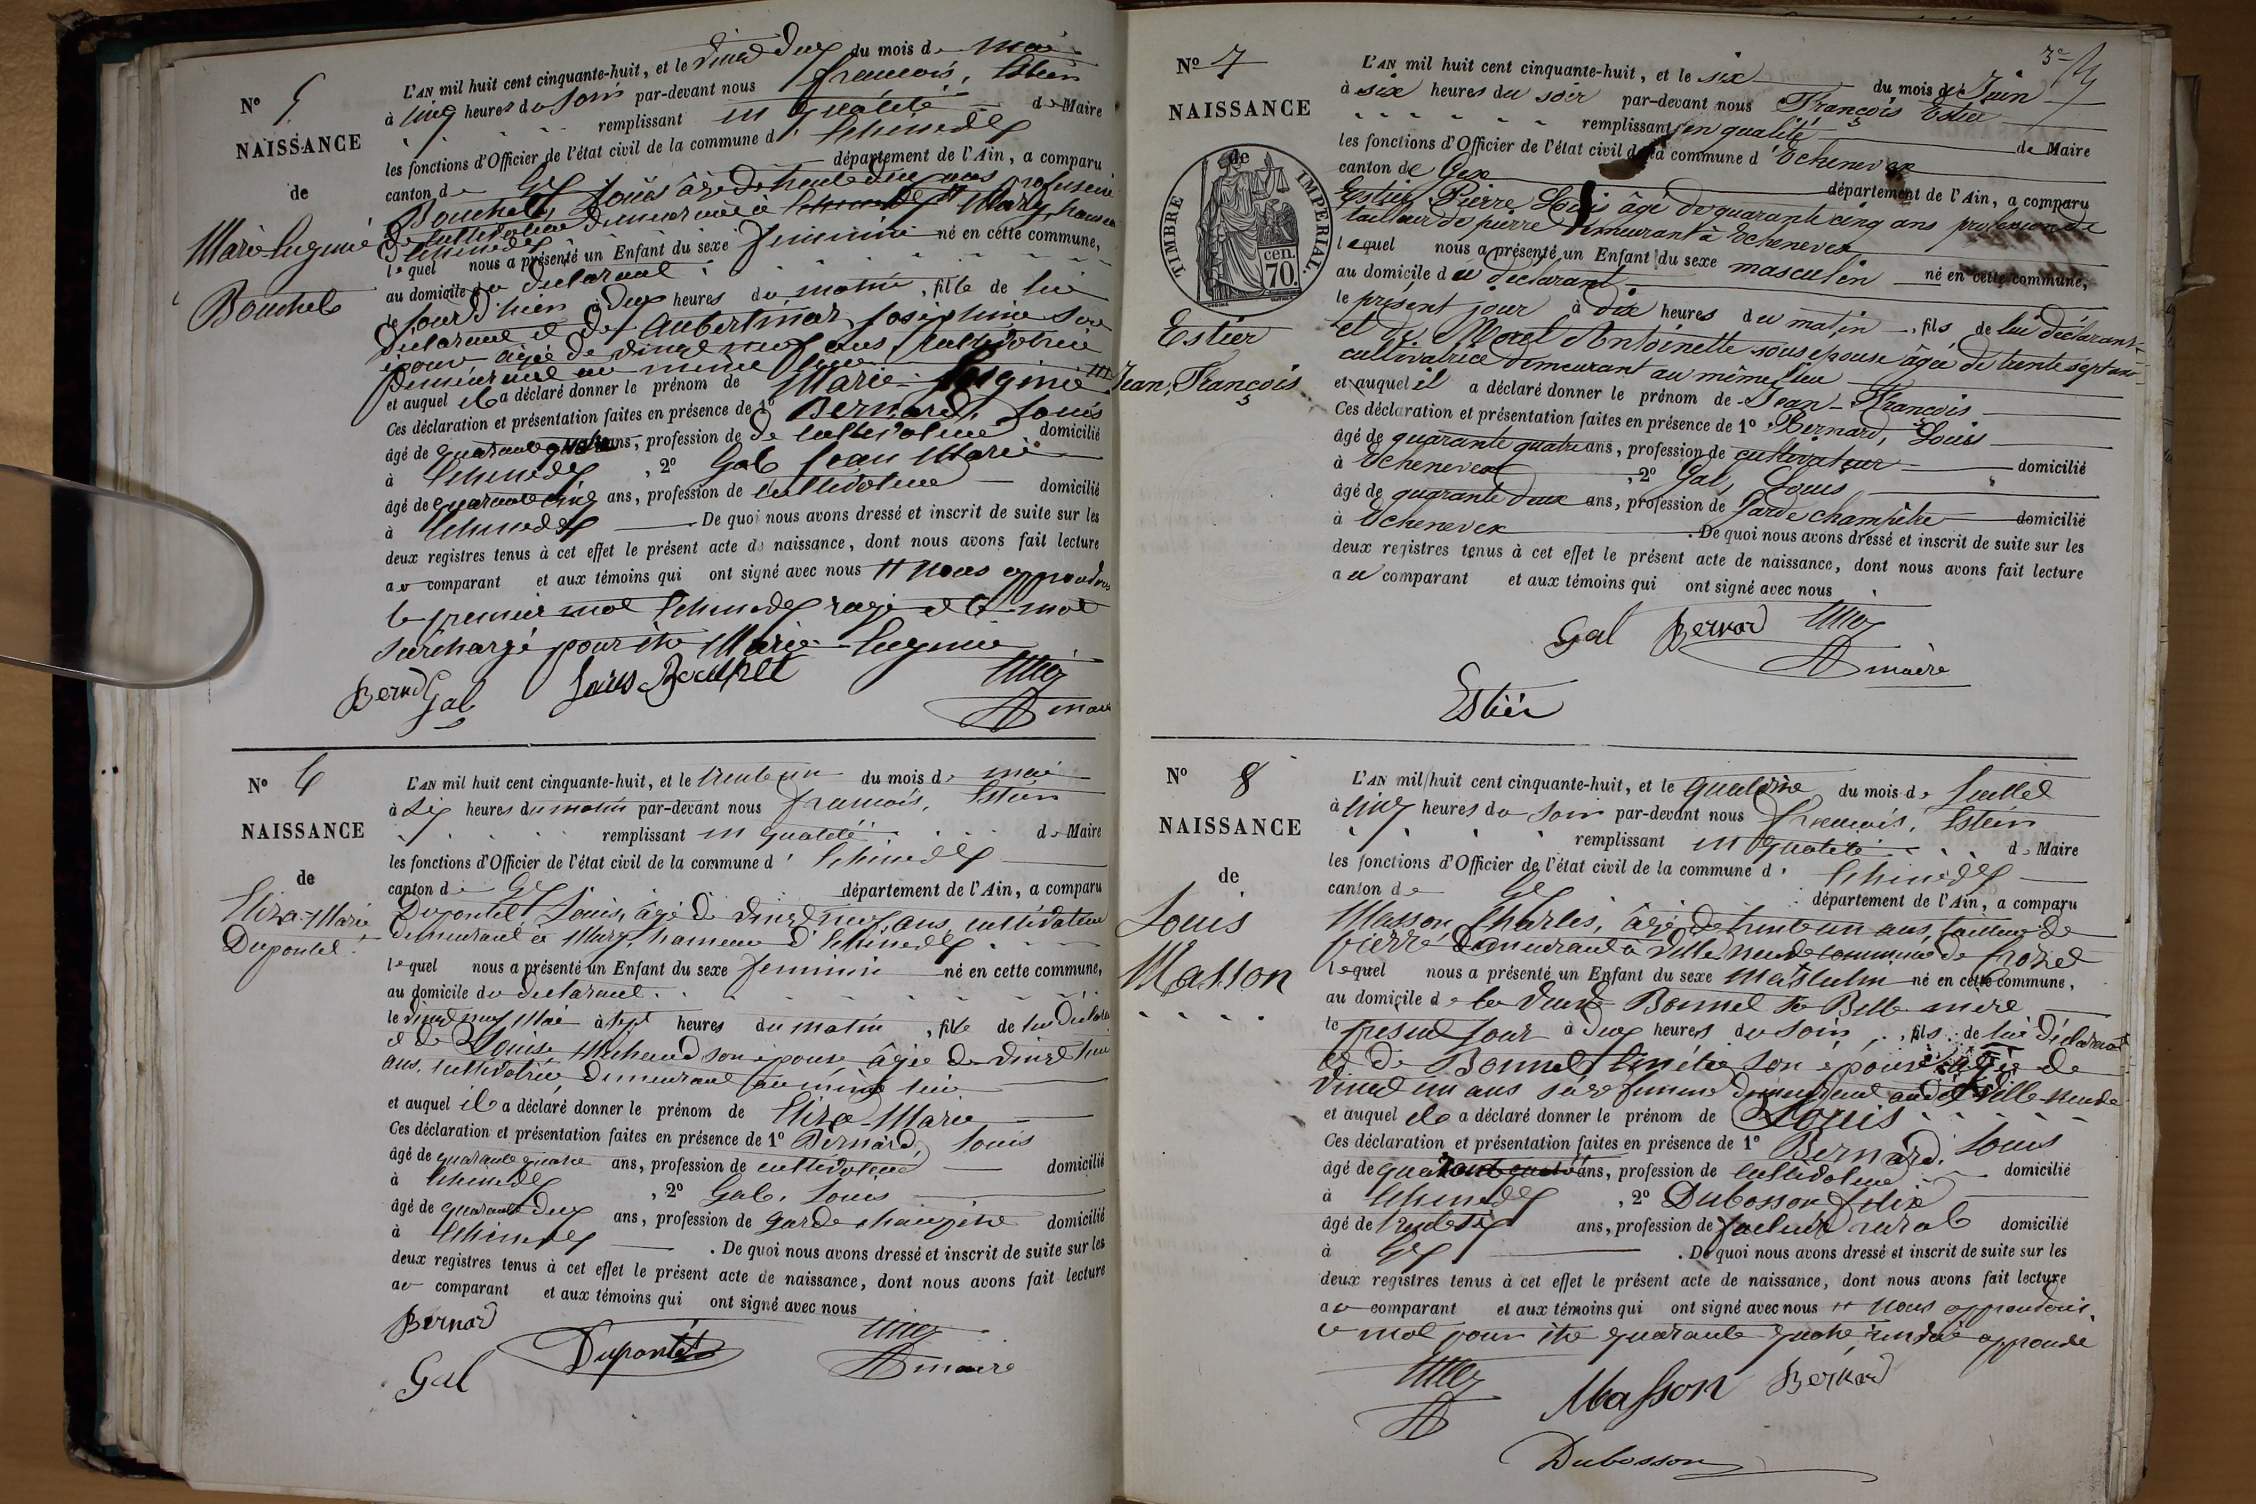 N° 5
NAISSANCE
de
Marie-Eugénie
Bouchet
L'AN mil huit cent cinquante-huit, et le vingt deux du mois de Mai
à cinq heures du soir par-devant nous François, Estier
remplissant en qualité de Maire
les fonctions d'Officier de l'état civil de la commune d'Echenevex
canton de Gex département de l'Ain, a comparu
Bouchet, Louis âgé de trente deux ans profession
de cultivateur demeurant à Echenevex # Mury, hameau
d'Echenevex
lequel nous a présenté un Enfant du sexe féminin né en cette commune,
au domicile du déclarant.
le jour d'hier à deux heures du matin, fille de lui
déclarant et de Aubertin Joséphine son
épouse âgée de vingt neuf ans, cultivatrice
demeurant au même lieu
et auquel il a déclaré donner le prénom de Marie-Eugénie
Ces déclaration et présentation faites en présence de 1° Bernard, Louis
âgé de quarante quatre ans, profession de cultivateur domicilié
à Echenevex, 2° Gal Jean Marie
âgé de quarante cinq ans, profession de cultivateur domicilié
à Echenevex. De quoi nous avons dressé et inscrit de suite sur les
deux registres tenus à cet effet le présent acte de naissance, dont nous avons fait lecture
au comparant et aux témoins qui ont signé avec nous # nous approuvons
le premier mot Echenevex rayé et le mot
surchargé pour être Marie-Eugénie
Bernard Gal Louis Bouchet
maire
N° 6
NAISSANCE
de
Eliza-Marie
Dupontet.
L'AN mil huit cent cinquante-huit, et le trente un du mois de mai
à six heures du matin par-devant nous François, Estier
remplissant en qualité de Maire
les fonctions d'Officier de l'état civil de la commune d'Echenevex
canton de Gex département de l'Ain, a comparu
Dupontet Louis, âgé de vingt neuf ans, cultivateur
demeurant à Mury, hameau d'Echenevex
lequel nous a présenté un Enfant du sexe féminin né en cette commune,
au domicile du déclarant.
le vingt neuf Mai à sept heures du matin, fille de lui déclarant
et de Louise Michaud son épouse, âgée de vingt huit
ans, cultivatrice, demeurant au même lieu
et auquel il a déclaré donner le prénom de Eliza-Marie
Ces déclaration et présentation faites en présence de 1° Bernard, Louis
âgé de quarante quatre ans, profession de cultivateur domicilié
à Echenevex, 2° Gal, Louis
âgé de quarante deux ans, profession de garde champêtre domicilié
à Echenevex. De quoi nous avons dressé et inscrit de suite sur les
deux registres tenus à cet effet le présent acte de naissance, dont nous avons fait lecture
au comparant et aux témoins qui ont signé avec nous
Bernard
Dupontet
Gal
maire
N° 7
NAISSANCE
de
TIMBRE IMPÉRIAL.
70. cen.
Estier
Jean, François
L'AN mil huit cent cinquante-huit, et le six du mois de Juin
à six heures du soir par-devant nous François Estier
remplissant en qualité de Maire
les fonctions d'Officier de l'état civil de la commune d'Echenevex
canton de Gex département de l'Ain, a comparu
Estier, Pierre Louis âgé de quarante cinq ans profession de
tailleur de pierre demeurant à Echenevex
lequel nous a présenté un Enfant du sexe masculin né en cette commune,
au domicile du déclarant
le présent jour à dix heures du matin, fils de lui déclarant
et de Morel Antoinette sous épouse âgée de trente sept ans
cultivatrice demeurant au même lieu
et auquel il a déclaré donner le prénom de Jean-François
Ces déclaration et présentation faites en présence de 1° Bernard, Louis
âgé de quarante quatre ans, profession de cultivateur domicilié
à Echenevex, 2° Gal, Louis
âgé de quarante deux ans, profession de garde champêtre domicilié
à Echenevex. De quoi nous avons dressé et inscrit de suite sur les
deux registres tenus à cet effet le présent acte de naissance, dont nous avons fait lecture
au comparant et aux témoins qui ont signé avec nous
Gal Bernard
maire
Estier
N° 8
NAISSANCE
de
Louis
Masson
L'AN mil huit cent cinquante-huit, et le quatorze du mois de Juillet
à cinq heures du soir par-devant nous François, Estier
remplissant en qualité de Maire
les fonctions d'Officier de l'état civil de la commune d'Echenevex
canton de Gex département de l'Ain, a comparu
Masson, Charles, âgé de trente un ans, tailleur de
pierre demeurant à Villeneuve commune de Crozet
lequel nous a présenté un Enfant du sexe masculin né en cette commune,
au domicile de la veuve Bonnet sa Belle mère
le présent jour à deux heures du soir, fils de lui déclarant
et de Bonnet son épouse âgée de
vingt un ans demeurant audit Ville-neuve
et auquel il a déclaré donner le prénom de Louis
Ces déclaration et présentation faites en présence de 1° Bernard, Louis
âgé de quarante quatre ans, profession de cultivateur domicilié
à Echenevex, 2° Dubosson Félix
âgé de trente six ans, profession de facteur rural domicilié
à Gex. De quoi nous avons dressé et inscrit de suite sur les
deux registres tenus à cet effet le présent acte de naissance, dont nous avons fait lecture
au comparant et aux témoins qui ont signé avec nous # nous approuvons
le mot pour être quarante quatre approuvé
Masson Bernard
Dubosson